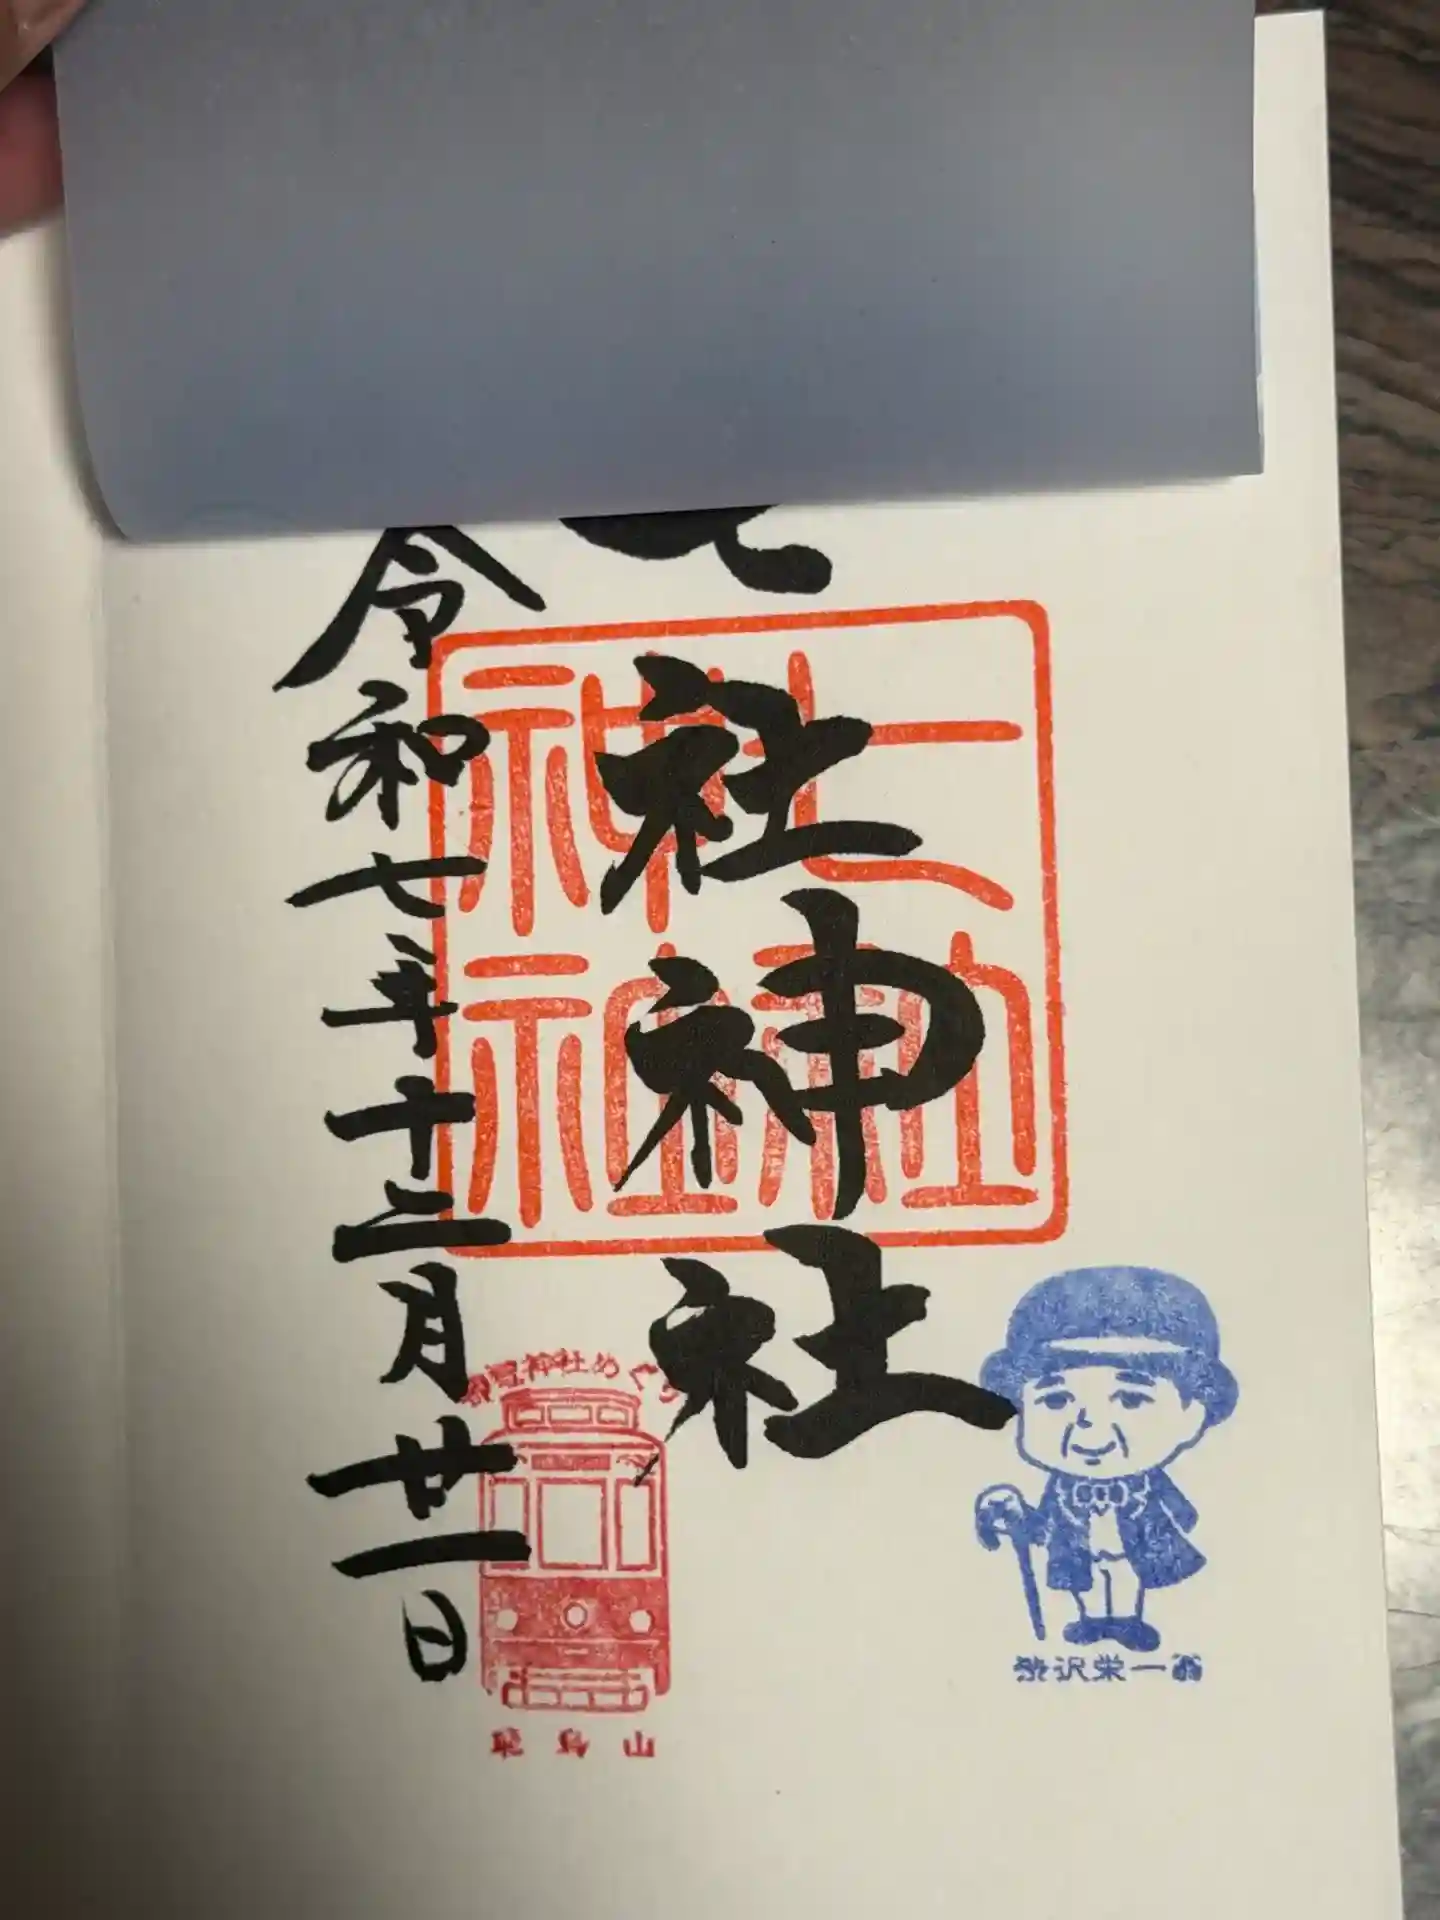 社神社
令和七年十二月廿一日
七社神社
都電神社めぐり
飛鳥山
渋沢栄一翁